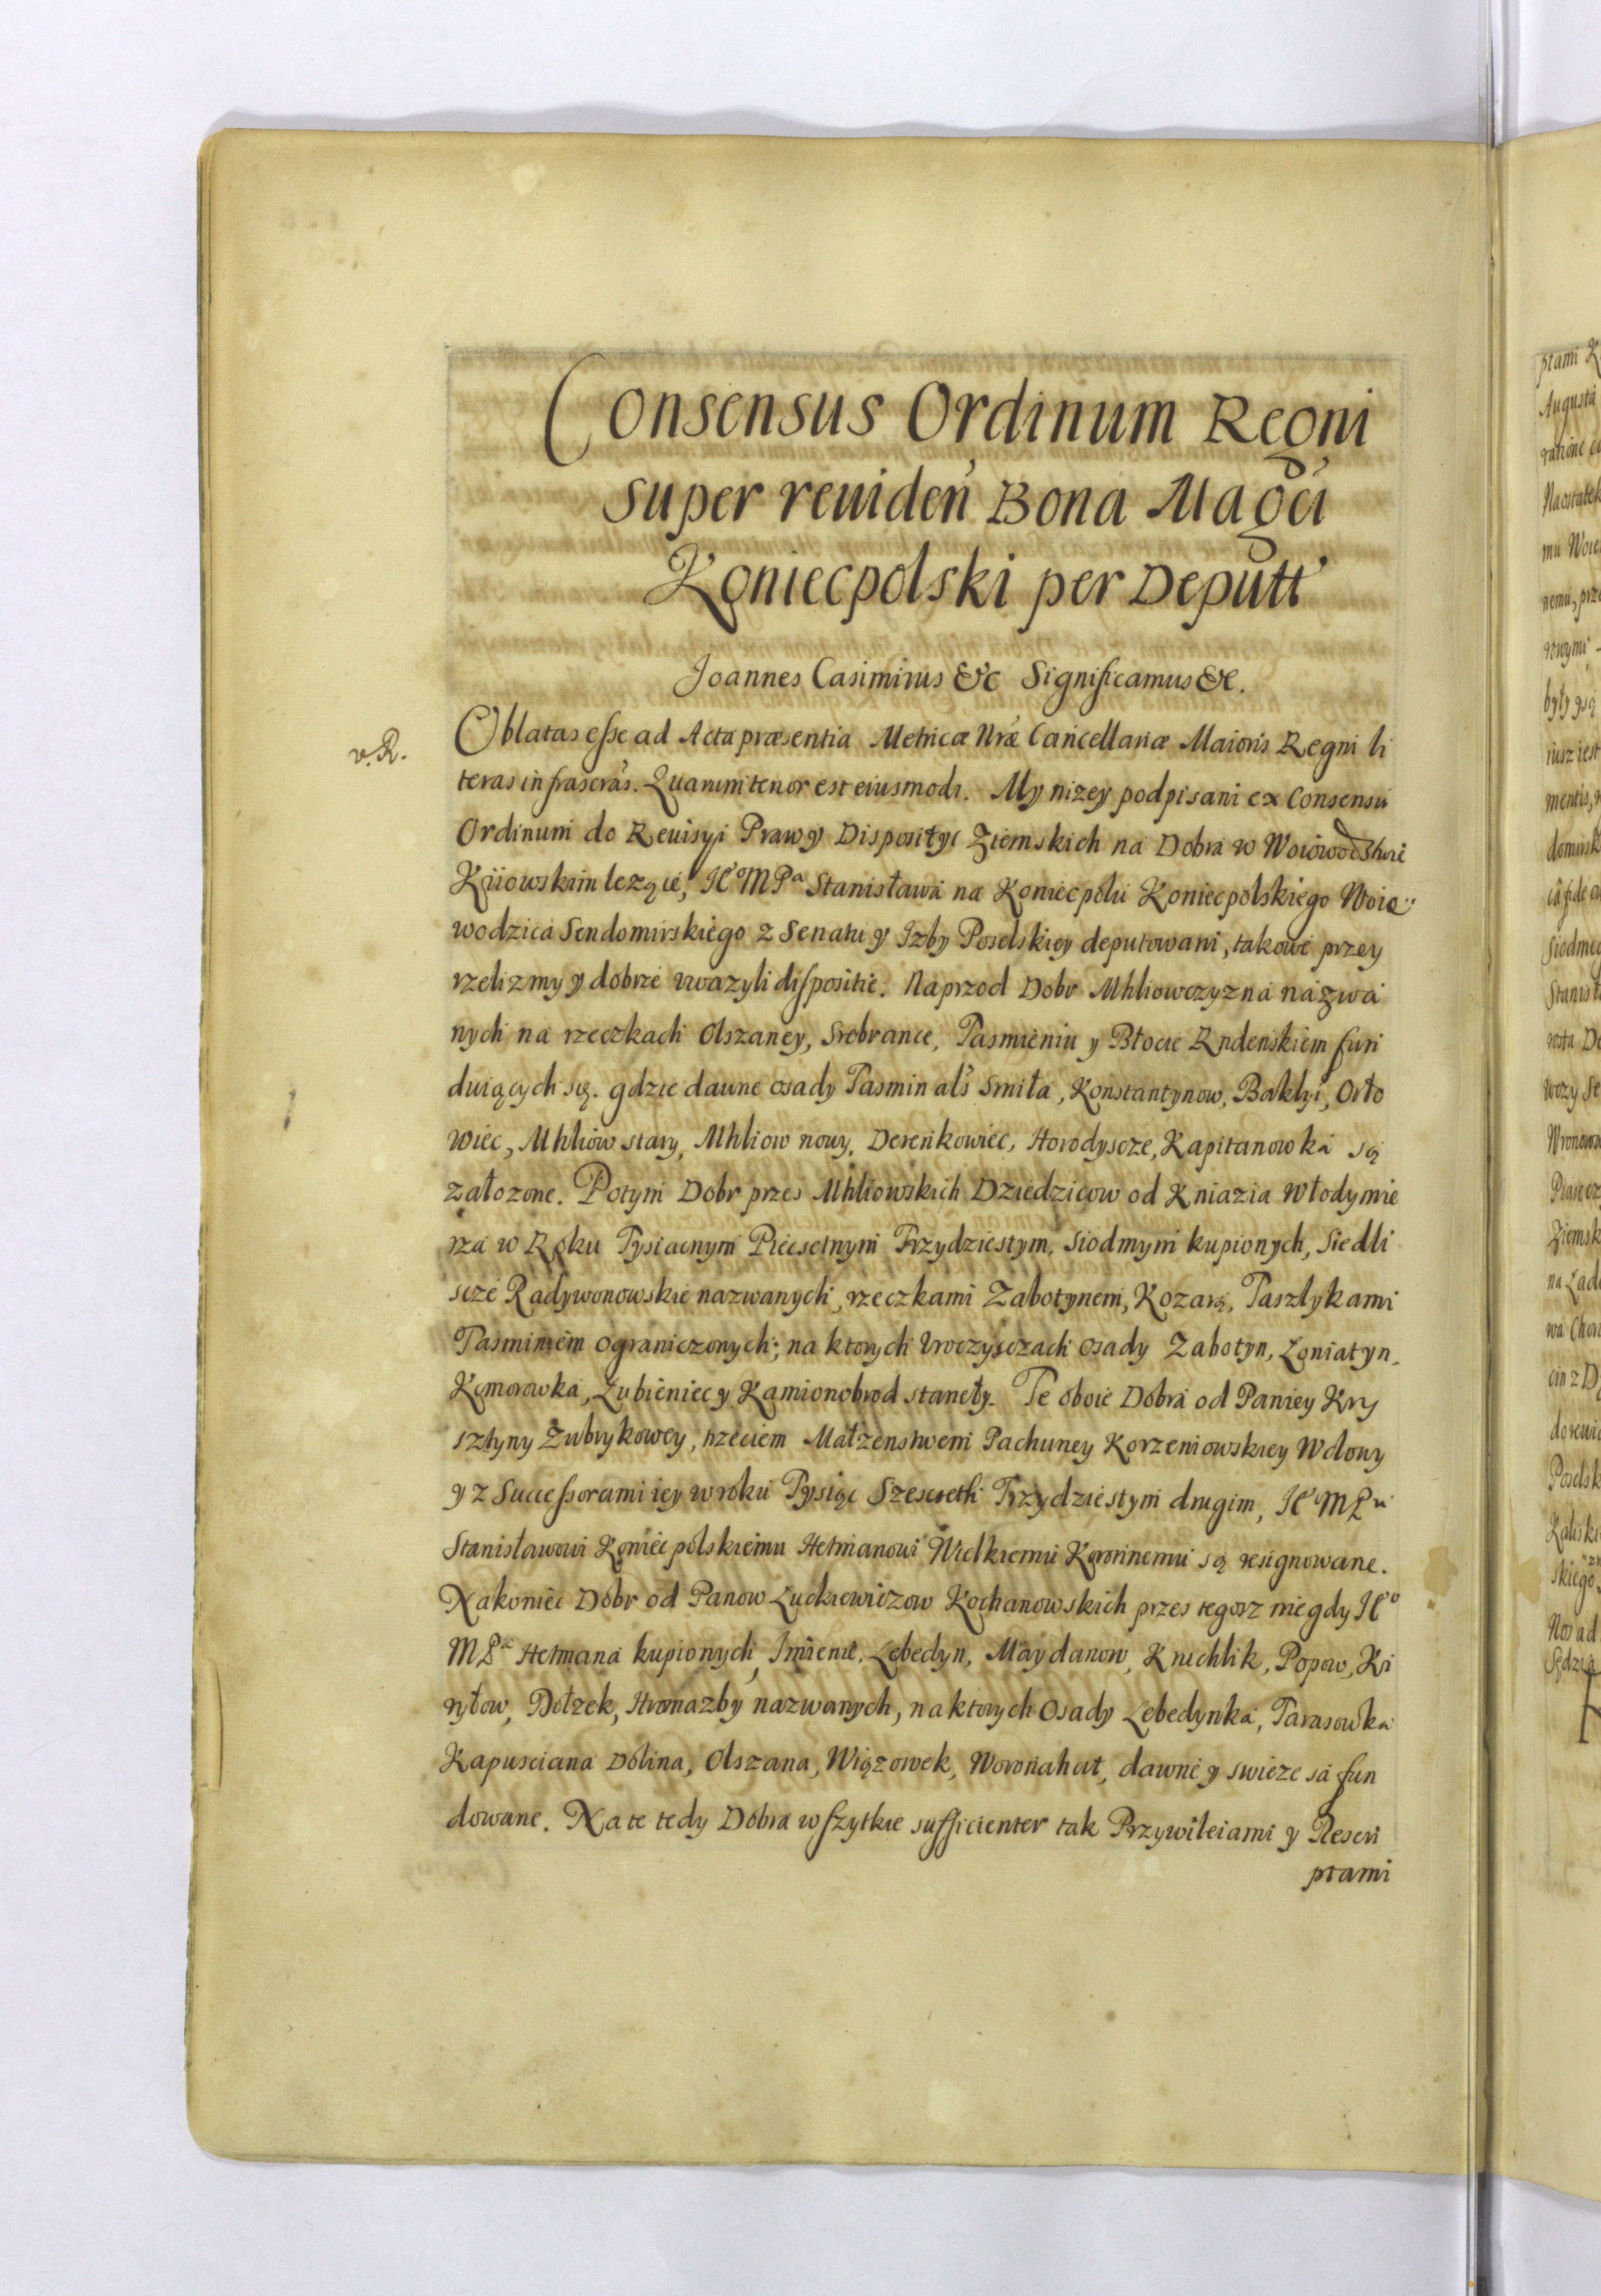 Consensus Ordinum Regni
super reuiden Bona Magci
Koniecpolski per Deputt
Joannes Casimirus &c Significamus &c.
v. R.
Oblatas esse ad Acta præsentia Metricæ Nræ Cancellariæ Maioris Regni li
teras infrascras. Quarum tenor est eiusmodi. My nizey podpisani ex Consensu
Ordinum do Reuisyi Praw y Disposityi Ziemskich na Dobra w Woiowodstwie
Kiiowskim lezące, JeoMPa Stanisława na Koniecpolu Koniecpolskiego Woie
wodzica Sendomirskiego z Senatu y Izby Poselskiey deputowani, takowe przey
rzelizmy y dobrze vwazyli dispositie. Naprzod Dobr Mhliowczyzna nazwa
nych na rzeczkach Olszaney, Srebrance, Tasmieniu y Błocie Rndenskiem fun
duiących się. gdzie dawne osady Tasmin als Smiła, Konstantynow, Baklyi, Orło
wiec, Mhliow stary, Mhliow nowy, Derenkowiec, Horodyscze, Kapitanowka są
załozone. Potym Dobr przes Mhliowskich Dziedzicow od Kniazia Włodymie
rza w Roku Tysiacnym Piecsetnym Trzydziestym, siodmym kupionych, Siedli
scze Radywonowskie nazwanych, rzeczkami Zabotynem, Kozarą, Taszlykami
Tasminiem ograniczonych; na ktorych vroczysczach osady Zabotyn, Loniatyn,
Komorowka, Lubieniec y Kamionobrod stanely. Te oboie Dobra od Paniey Kry
sztyny Zubrykowey, trzeciem Małzenstwem Pachuney Korzeniowskiey Wdowy
y z Successorami iey w roku Tysiąc Szescsetli Trzydziestym drugim, JeoMPu
Stanisławowi Koniecpolskiemu Hetmanowi Wielkiemu Koronnemu są resignowane.
Nakoniec Dobr od Panow Luckiewiczow Kochanowskich przes tegosz niegdy Jeo
MPa Hetmana kupionych, Imienie, Lebedyn, Maydanow, Knichlik, Popow, Ki
ryłow, Dołzek, Hromazby nazwanych, na ktorych Osady Lebedynka, Tarasowka
Kapusciana Dolina, Olszana, Wiązowek, Woronahat, dawne y swieze są fun
dowane. Na te tedy Dobra wszytkie sufficienter tak Przywileiami y Rescri
ptami